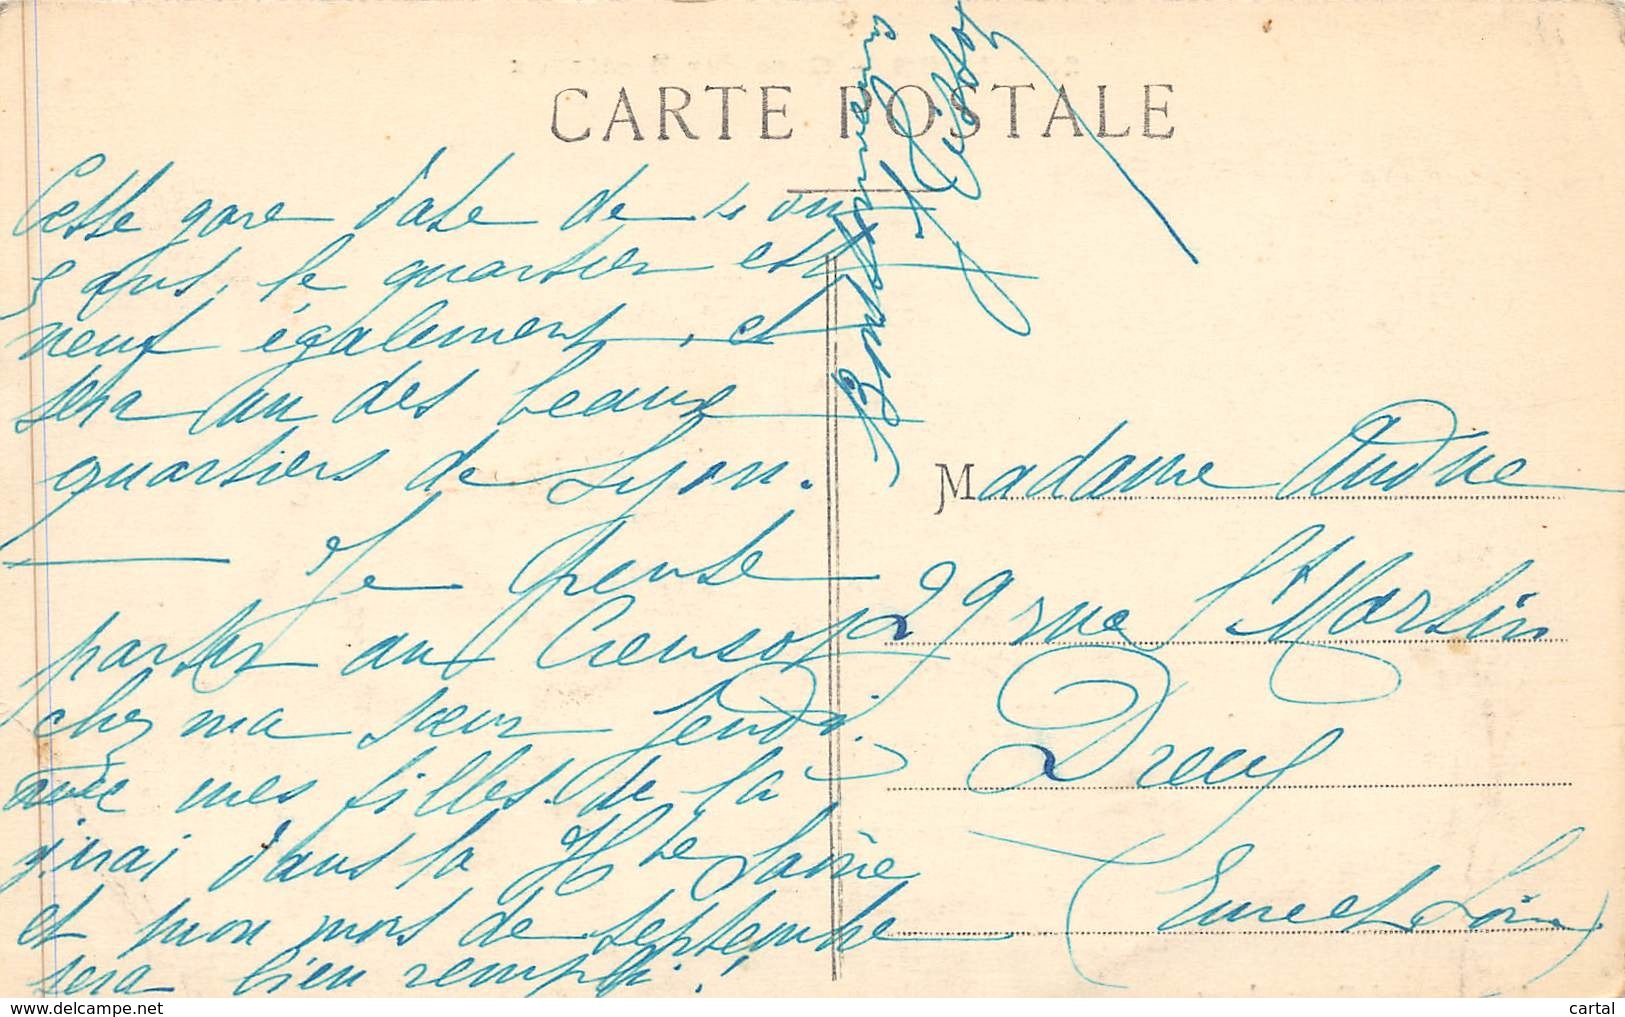 CARTE POSTALE
Cette gare date de 4 ou
5 ans, le quartier est
neuf également, et
sera un des beaux
quartiers de Lyon.
Je pense
partir au Creusot
chez ma sœur jeudi.
avec mes filles. de la
j'irai dans la Hte Saône
et mon mois de septembre
sera bien rempli.!
Bien
Madame Andrée
29 rue St Martin
Dreux
(Eure et Loir)
www.delcampe.net
cartal